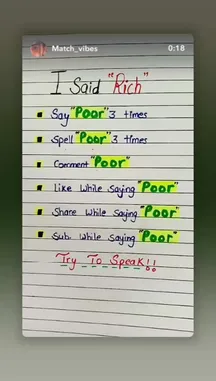 Match_vibes 0:18
I Said "Rich"
Say "Poor" 3 times
Spell "Poor" 3 times
Comment "Poor"
Like While Saying "Poor"
Share While Saying "Poor"
Sub. While Saying "Poor"
Try To Speak!!